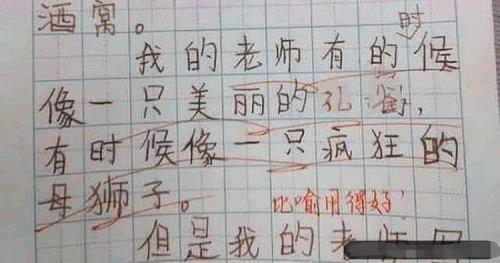 酒窝。
时
我的老师有的候
像一只美丽的孔雀,
有时候像一只疯狂的
母狮子。
比喻用得好!
但是我的老师